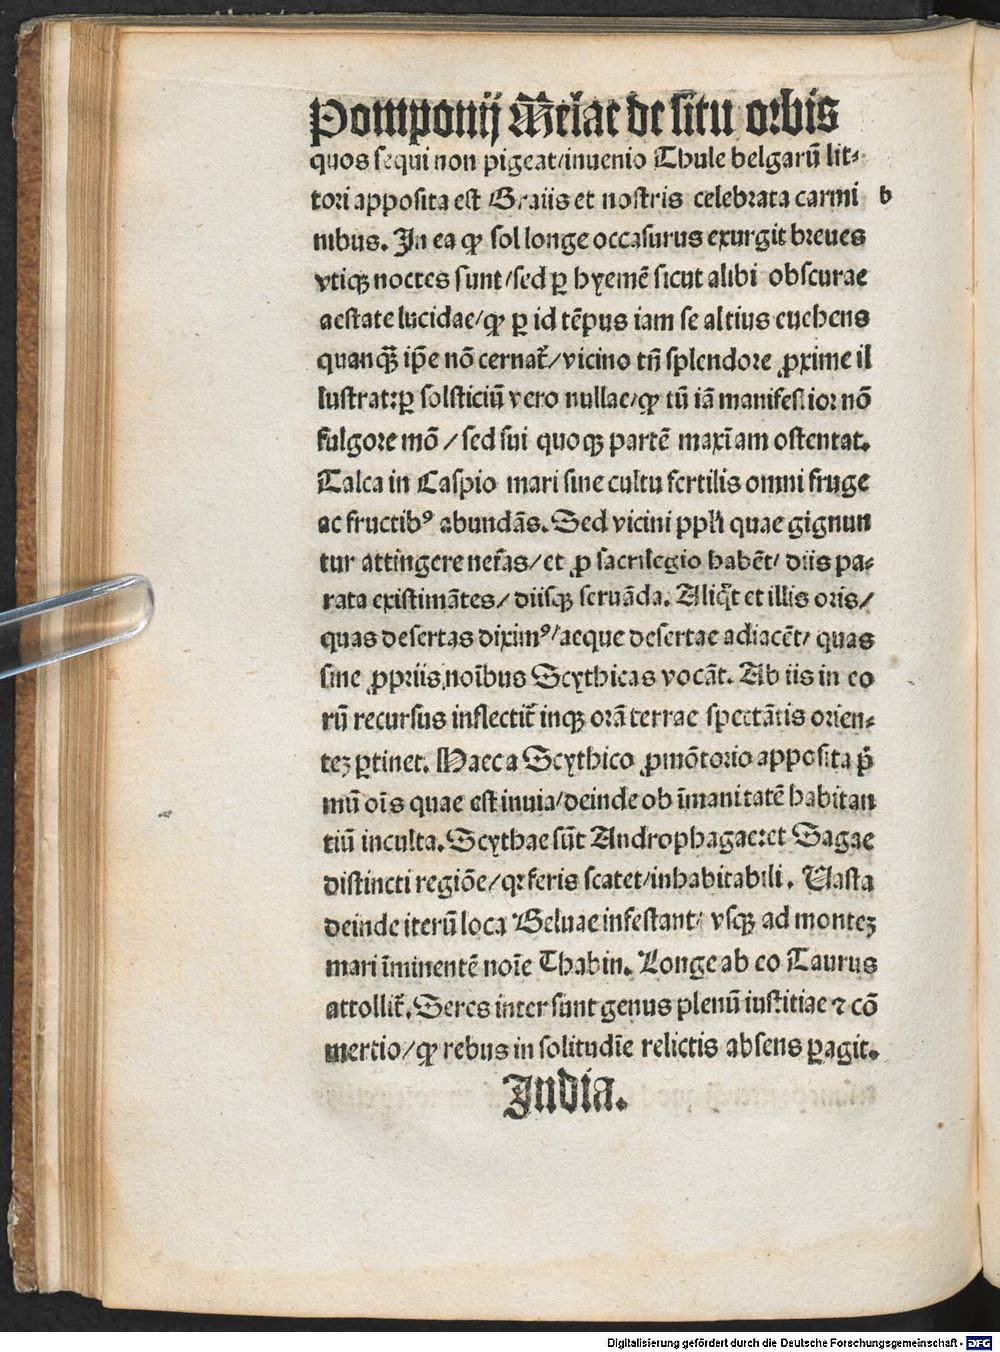 Pomponij Melae de situ orbis
quos sequi non pigeat/inuenio Thule belgarū lit⸗
tori apposita est Graiis et nostris celebrata carmi
b
nibus. In ea ꝙ sol longe occasurus exurgit breues
vtiqꝫ noctes sunt/sed ꝑ hyemē sicut alibi obscurae
aestate lucidae/ꝙ ꝑ id tēpus iam se altius euehens
quanqꝫ̃ ip̄e nō cernat᷑/vicino tn̄ splendore ꝓxime il
lustrat:ꝑ solsticiū vero nullae/ꝙ tū iā manifestior nō
fulgore mō / sed sui quoqꝫ partē maxīam ostentat.
Talca in Caspio mari sine cultu fertilis omni fruge
ac fructibꝰ abundās. Sed vicini ppl'i quae gignun
tur attingere nefas/et ꝓ sacrilegio habēt/ diis pa⸗
rata existimātes/ diisqꝫ seruāda. Aliqͥt et illis oris/
quas desertas diximꝰ/aeque desertae adiacēt/ quas
sine ꝓpriis noībus Scythicas vocāt. Ab iis in eo
rū recursus inflectit᷑ inqꝫ orā terrae spectātis orien⸗
teꝫ ꝑtinet. Haec a Scythico ꝓmōtorio apposita pͥ
mū oīs quae est inuia/deinde ob īmanitatē habitan
tiū inculta. Scythae sūt Androphagae:et Sagae
distincti regiōe/qꝛ feris scatet/inhabitabili. Vasta
deinde iterū loca Beluae infestant/ vsqꝫ ad monteꝫ
mari īminentē noīe Thabin. Longe ab eo Taurus
attollit᷑. Seres inter sunt genus plenū iustitiae ⁊ cō
mertio/ꝙ rebus in solitudīe relictis absens ꝑagit.
India.
Digitalisierung gefördert durch die Deutsche Forschungsgemeinschaft - DFG